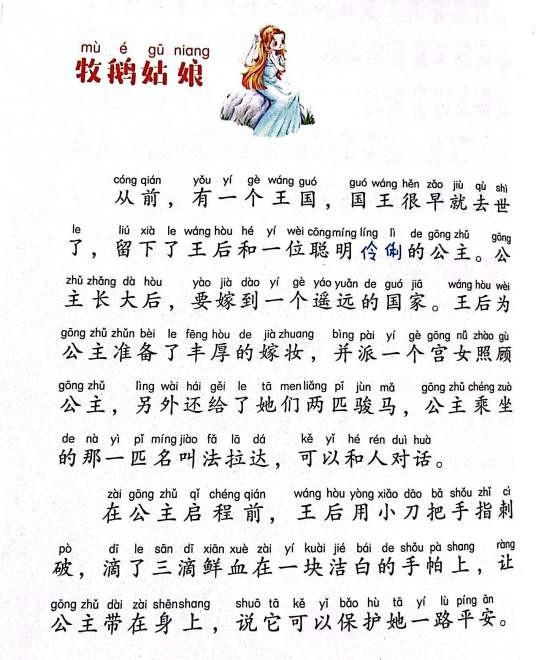 mù é gū niang
牧鹅姑娘
cóng qián yǒu yí gè wáng guó guó wáng hěn zǎo jiù qù shì
从前，有一个王国，国王很早就去世
le liú xià le wáng hòu hé yí wèi cōng míng líng lì de gōng zhǔ gōng
了，留下了王后和一位聪明伶俐的公主。公
zhǔ zhǎng dà hòu yào jià dào yí gè yáo yuǎn de guó jiā wáng hòu wèi
主长大后，要嫁到一个遥远的国家。王后为
gōng zhǔ zhǔn bèi le fēng hòu de jià zhuang bìng pài yí gè gōng nǚ zhào gù
公主准备了丰厚的嫁妆，并派一个宫女照顾
gōng zhǔ lìng wài hái gěi le tā men liǎng pǐ jùn mǎ gōng zhǔ chéng zuò
公主，另外还给了她们两匹骏马，公主乘坐
de nà yì pǐ míng jiào fǎ lā dá kě yǐ hé rén duì huà
的那一匹名叫法拉达，可以和人对话。
zài gōng zhǔ qǐ chéng qián wáng hòu yòng xiǎo dāo bǎ shǒu zhǐ cì
在公主启程前，王后用小刀把手指刺
pò dī le sān dī xiān xuè zài yí kuài jié bái de shǒu pà shang ràng
破，滴了三滴鲜血在一块洁白的手帕上，让
gōng zhǔ dài zài shēn shang shuō tā kě yǐ bǎo hù tā yí lù píng ān
公主带在身上，说它可以保护她一路平安。